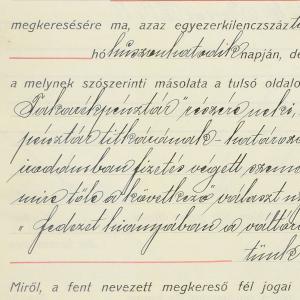 megkeresésére ma, azaz egyezerkilenczszáz
hó huszonhatodik napján, de
a melynek szószerinti másolata a tulsó oldalo
Takarékpénztár" részére neki,
pénztár titkárának - határozo
irodámban fizetés végett szeme
mire tőle a következő választ
"fedezet hiányában a váltó
tünk
Miről, a fent nevezett megkereső fél jogai